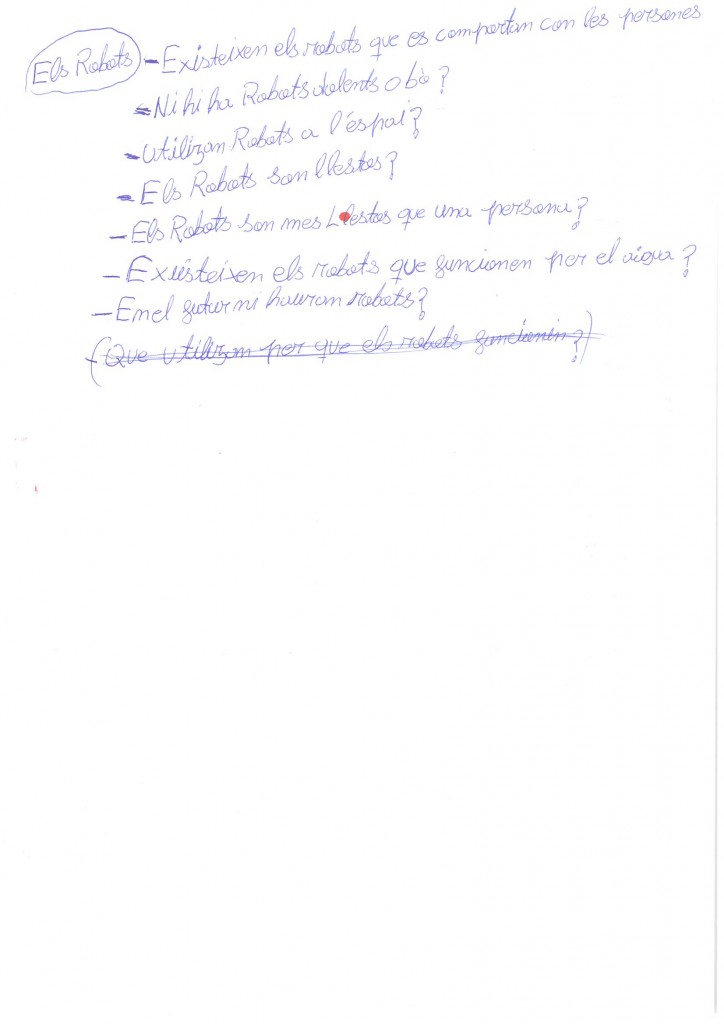 Els Robots - Existeixen els robots que es comportan con les persones
- Ni hi ha Robots dolents o bò?
- Utilizan Robots a l'éspai?
- Els Robots son llestos?
- Els Robots son mes Llestos que una persona?
- Existeixen els robots que funcionen per el aigua?
- En el futur ni hauran robots?
(- Que utilizan per que els robots funcionin?)